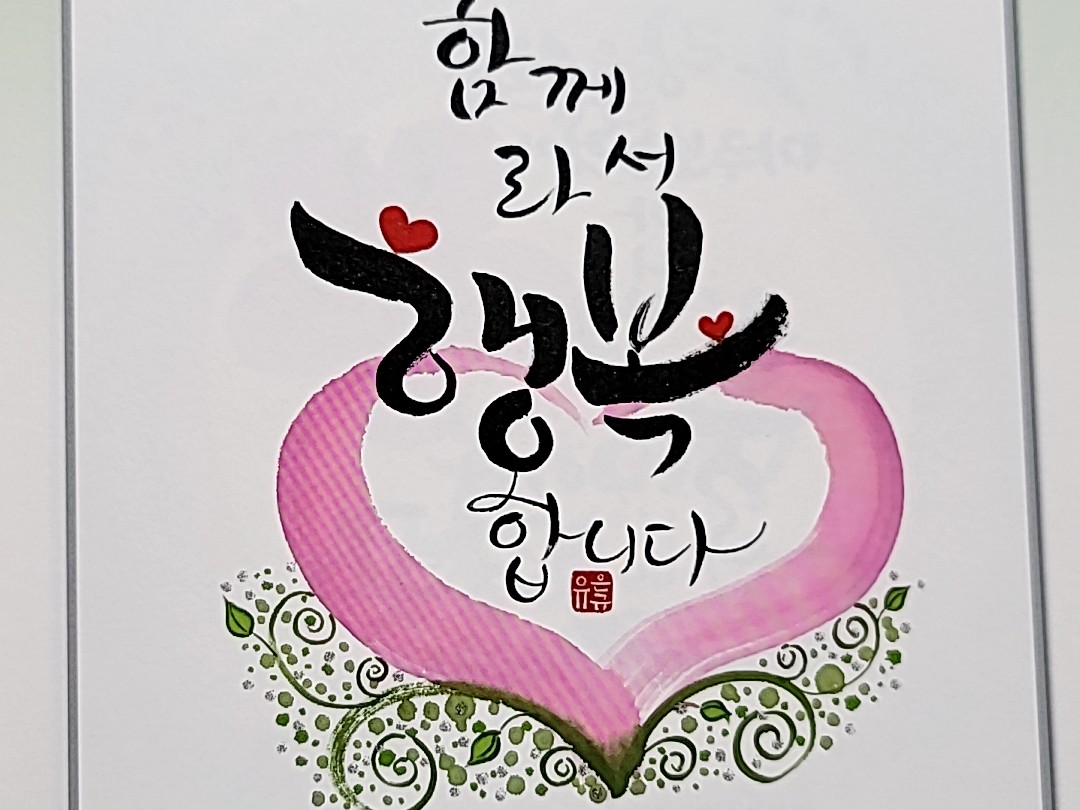 함께
라서
행복
합니다